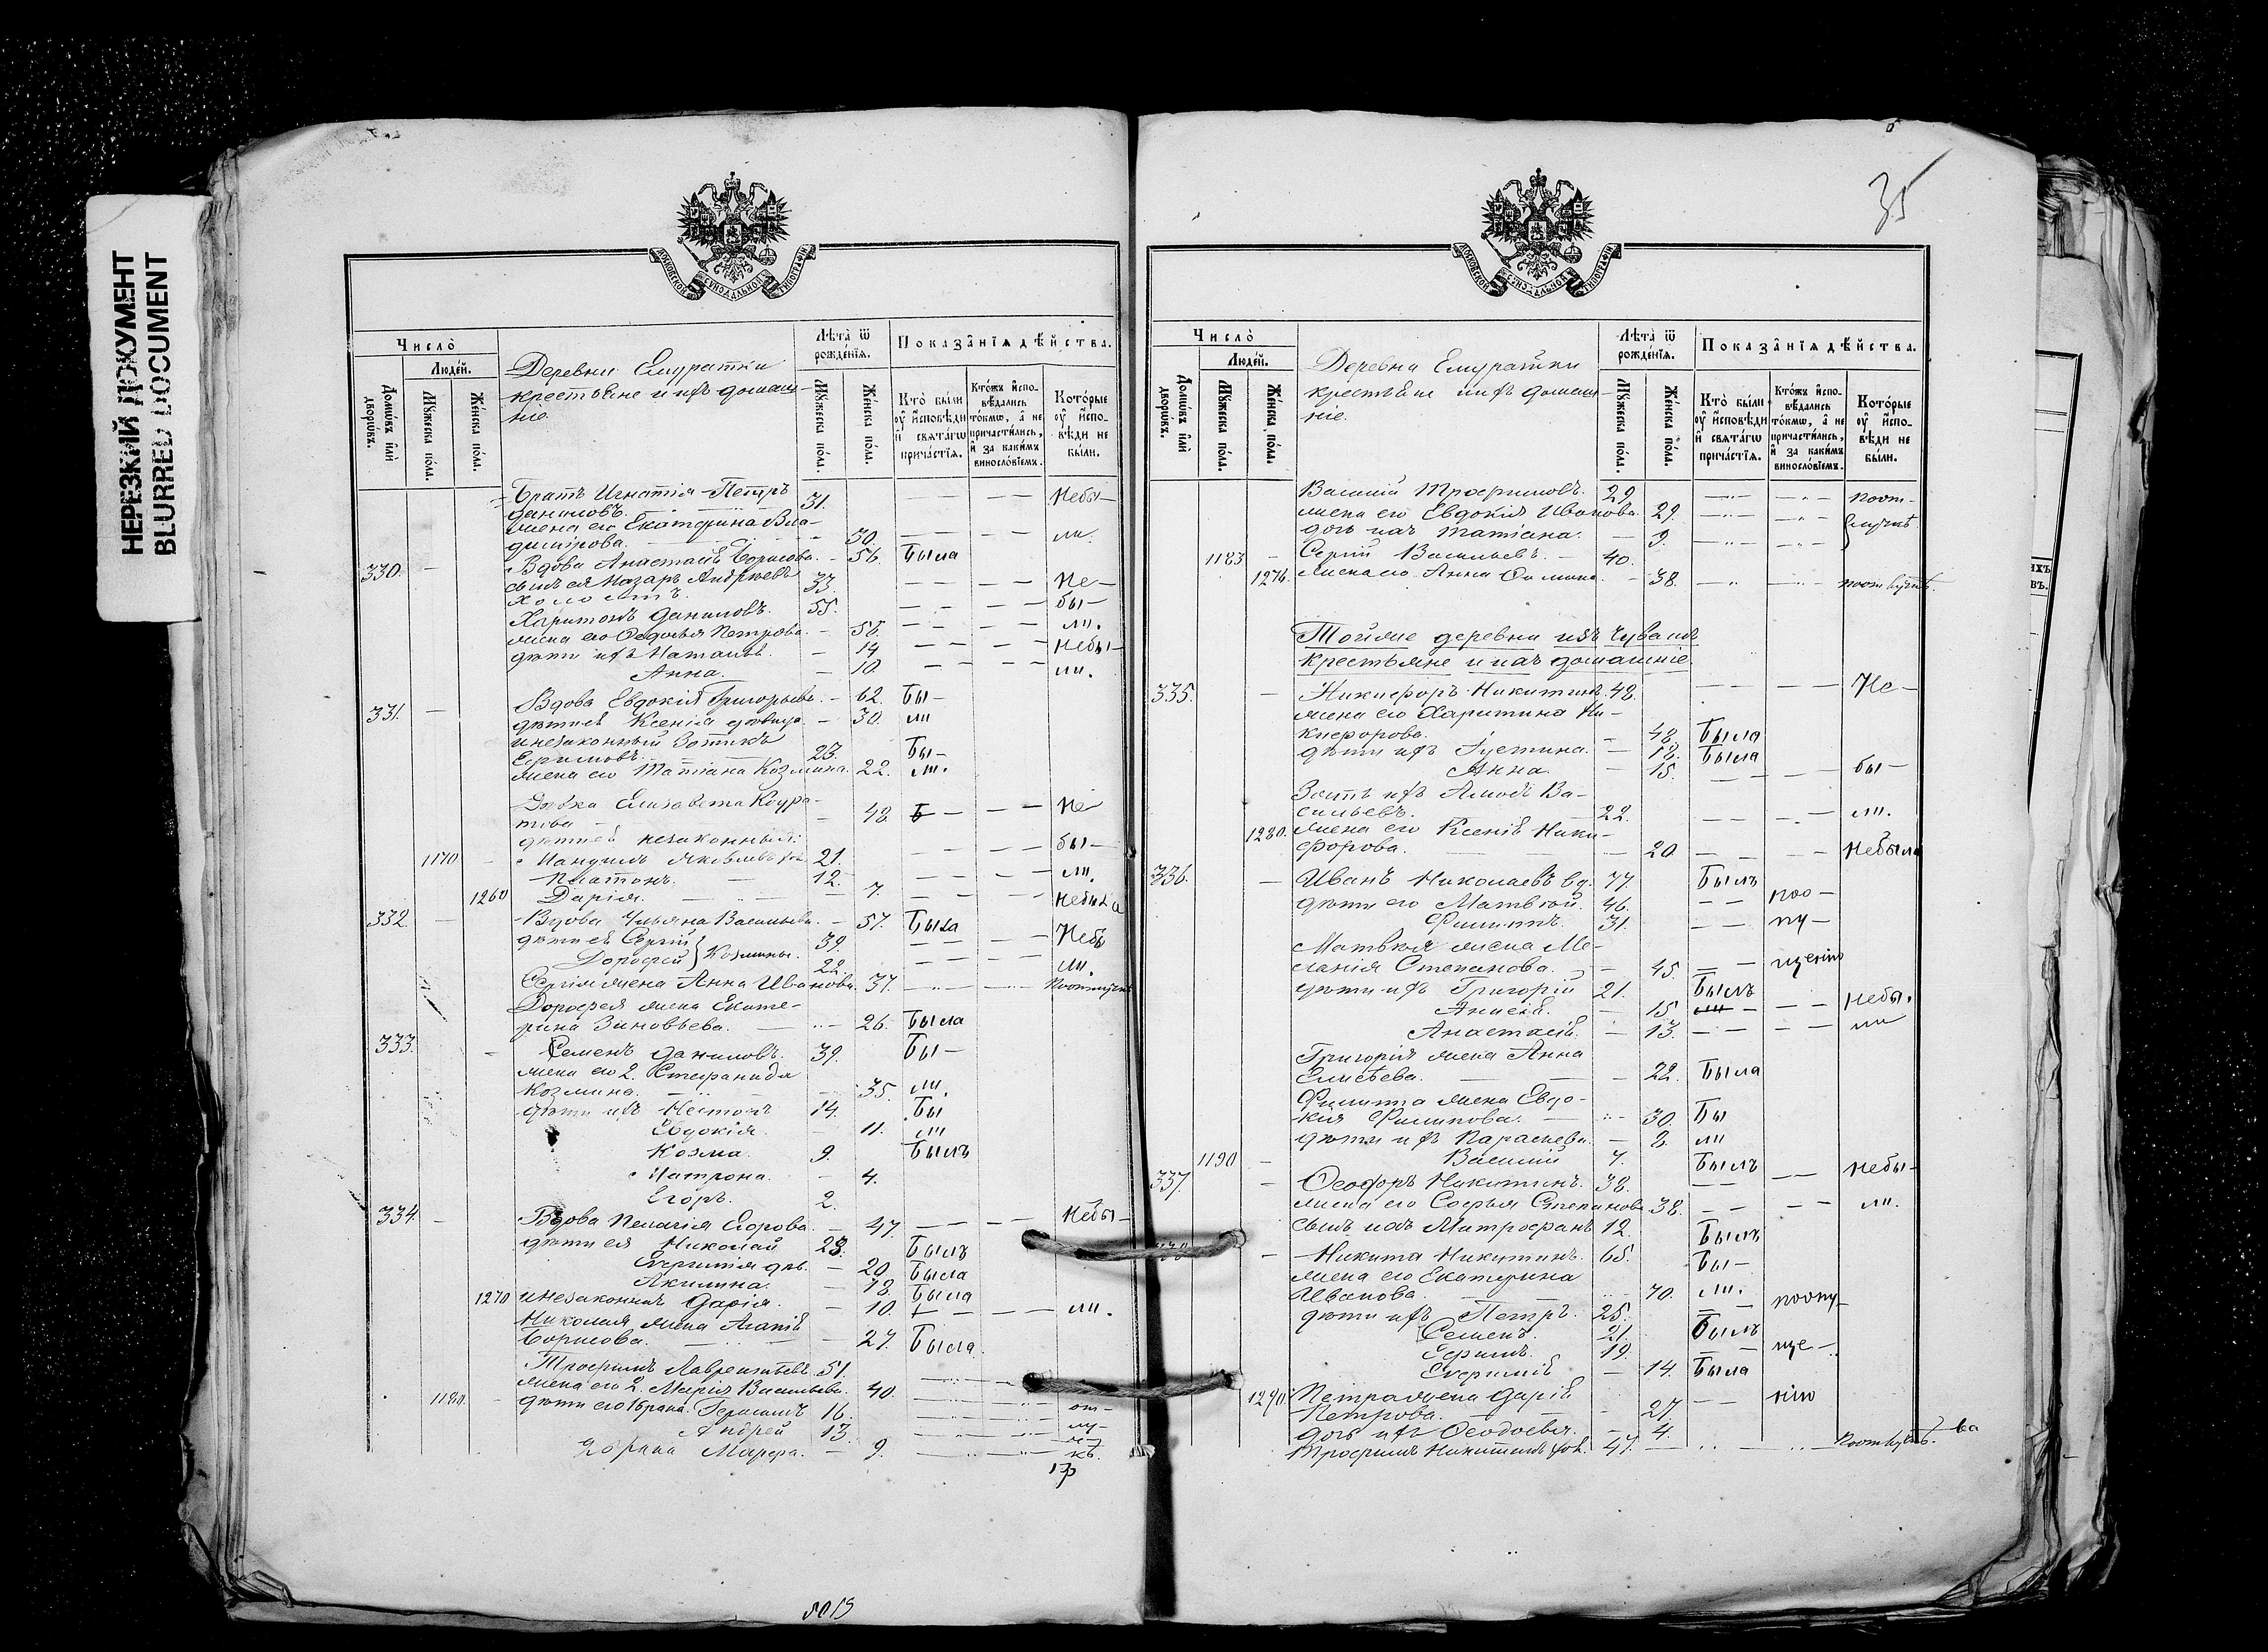 НЕРЕЗКИЙ ДОКУМЕНТ
BLURRED DOCUMENT
МОСКОВСКОЙ СѴНОДАЛЬНОЙ ТИПОГРАФІИ
Число̀
Людей.
Домѡвъ или дворѡвъ.
Мужеска пола.
Женска пола.
Деревни Емуратки
крестьяне и ихъ домаш-
ніе.
Лѣта ѿ рожденія.
Мужеска пола.
Женска пола.
Показанія дѣйства.
Кто были у исповѣди и святагѡ причастія.
Ктожъ исповѣдались токмѡ, а не причастились, и за какимъ винословіемъ.
Которые у исповѣди не были.
Братъ Игнатія Петръ
Даниловъ. 31. Небы-
жена его Екатерина Вла-
димірова. 30. ли.
330. Вдова Анастасія Борисова. 56. Была
сынъ ея Назаръ Андреевъ
холостъ. 33. Не-
Харитонъ Даниловъ. 55. бы-
жена его Федосья Петрова. 55. ли.
дѣти ихъ Наталія. 14 Небы-
Анна. 10. ли.
331. Вдова Евдокія Григорьева. 62. Бы-
дѣти ея Ксенія дѣвица 30. ли
и незаконный Зотикъ
Ефимовъ. 23. Бы-
жена его Татіана Козмина. 22. ли.
Дѣвка Елизавета Кондра-
това 48. Не
дѣти ей незаконные:
1170 Мануилъ Яковлевъ хол. 21. бы-
Платонъ. 12. ли.
1260 Дарія. 7. Небыла
332. Вдова Ульяна Васильева. 57. Была
дѣти ея Сергій 39. Небы
Дорофей } Козмины. 22. ли.
Сергія жена Анна Иванова. 37.
Дорофея жена Екате-
рина Зиновьева. 26. Была
333. Семенъ Даниловъ. 39. Бы-
жена его 2. Стефанида
Козмина. 35 ли.
дѣти ихъ Несторъ 14. Бы
Евдокія. 11. ли
Козма. 9. Былъ
Матрона. 4.
Егоръ. 2.
334. Вдова Пелагія Егорова. 47. Небы-
дѣти ея Николай 23. Былъ
дѣв. 20 Была
Акилина. 18. Была
1270 и незаконная Дарія. 10. ли.
Николая жена Агапія
Борисова. 27. Была
Трофимъ Лаврентьевъ 51.
жена его 2. Марія Васильева. 40.
1180. дѣти его 1 брака: Герасимъ 16. от-
Андрей 13. лу-
2 брака Марфа. 9.
5019
35
МОСКОВСКОЙ СѴНОДАЛЬНОЙ ТИПОГРАФІИ
Число̀
Людей.
Домѡвъ или дворѡвъ.
Мужеска пола.
Женска пола.
Деревни Емуратки
крестьяне и ихъ домаш-
ніе.
Лѣта ѿ рожденія.
Мужеска пола.
Женска пола.
Показанія дѣйства.
Кто были у исповѣди и святагѡ причастія.
Ктожъ исповѣдались токмѡ, а не причастились, и за какимъ винословіемъ.
Которые у исповѣди не были.
Василій Трофимовъ. 29. поот-
жена его Евдокія Иванова. 29. лучкѣ
дочь ихъ Татіана. 9.
1183 Сергій Васильевъ. 40.
1276. жена его Анна 38. поотлучкѣ.
Тойже деревни изъ Чувашъ
крестьяне и ихъ домашніе.
335. Никифоръ Никитинъ. 48. Не-
жена его Харитина Ни-
кифорова. 48. Была
дѣти ихъ Іустина. 18. Была
Анна. 15. бы-
Зять ихъ Ва-
сильевъ. 22. ли.
1280. жена его Ксенія Ники-
форова. 20. Небыла
336. Иванъ Николаевъ вд. 77. Былъ
дѣти его Матвѣй. 46. поо-
Филиппъ. 31. пу-
Матвѣя жена Ме-
ланія Степанова. 45. щенію
дѣти ихъ Григорій 21. Былъ
Анисія. 15. Небы.
Анастасія. 13. ли
Григорія жена Анна
Елисѣева. 22. Была
Филиппа жена Евдо-
кія Филипова. 30. Бы
дѣти ихъ Параскева. 8. ли
1190 Василій 7. Былъ
337. Феодоръ Никитинъ. 38. Небы-
жена его Софья Степанова 38. ли.
сынъ ихъ Митрофанъ 12. Былъ
338. Никита Никитинъ. 65. Бы-
жена его Екатерина
Иванова. 70. ли.
дѣти ихъ Петръ. 25. поопу-
Семенъ. 21. Былъ
Ефимъ. 19. ще-
14. Была
1290. Петра жена Дарія
Петрова. 27. нію
дочь ихъ Феодосія. 4.
Трофимъ Никитинъ хол. 47. поотлучкѣ.